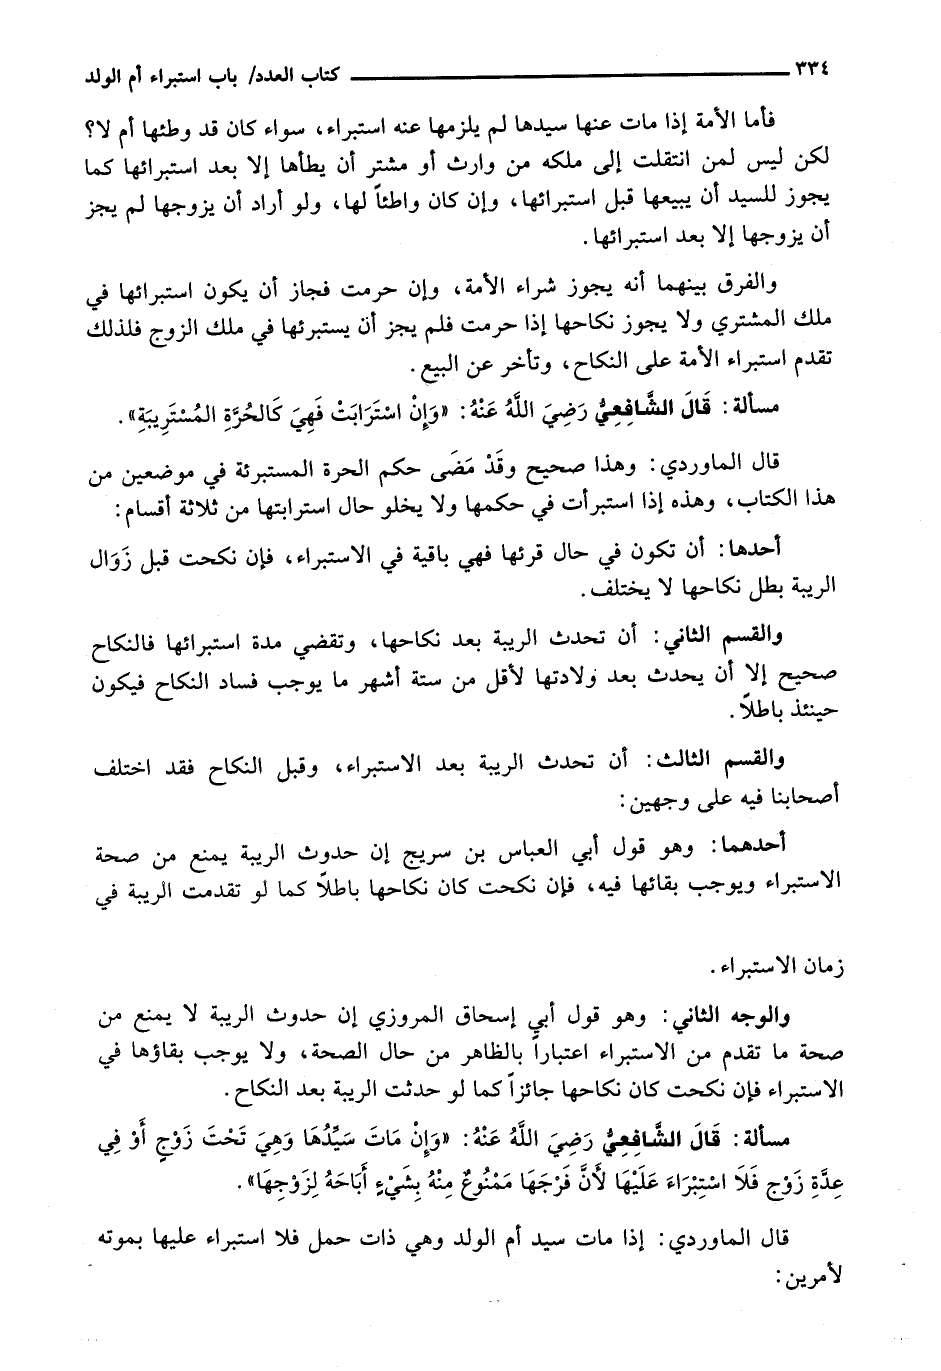 ٣٣٤ كتاب العدد/ باب استبراء أم الولد
فأما الأمة إذا مات عنها سيدها لم يلزمها عنه استبراء، سواء كان قد وطئها أم لا؟
لكن ليس لمن انتقلت إلى ملكه من وارث أو مشتر أن يطأها إلا بعد استبرائها كما
يجوز للسيد أن يبيعها قبل استبرائها، وإن كان واطئاً لها، ولو أراد أن يزوجها لم يجز
أن يزوجها إلا بعد استبرائها.
والفرق بينهما أنه يجوز شراء الأمة، وإن حرمت فجاز أن يكون استبرائها في
ملك المشتري ولا يجوز نكاحها إذا حرمت فلم يجز أن يستبرئها في ملك الزوج فلذلك
تقدم استبراء الأمة على النكاح، وتأخر عن البيع.
مسألة: قَالَ الشَّافِعِيُّ رَضِيَ اللَّهُ عَنْهُ: «وَإِنْ اسْتَرَابَتْ فَهِيَ كَالحُرَّةِ المُسْتَرِيبَةِ».
قال الماوردي: وهذا صحيح وقَدْ مَضَى حكم الحرة المستبرئة في موضعين من
هذا الكتاب، وهذه إذا استبرأت في حكمها ولا يخلو حال استرابتها من ثلاثة أقسام:
أحدها: أن تكون في حال قرئها فهي باقية في الاستبراء، فإن نكحت قبل زَوَال
الريبة بطل نكاحها لا يختلف.
والقسم الثاني: أن تحدث الريبة بعد نكاحها، وتقضي مدة استبرائها فالنكاح
صحيح إلا أن يحدث بعد ولادتها لأقل من ستة أشهر ما يوجب فساد النكاح فيكون
حينئذ باطلاً.
والقسم الثالث: أن تحدث الريبة بعد الاستبراء، وقبل النكاح فقد اختلف
أصحابنا فيه على وجهين:
أحدهما: وهو قول أبي العباس بن سريج إن حدوث الريبة يمنع من صحة
الاستبراء ويوجب بقائها فيه، فإن نكحت كان نكاحها باطلاً كما لو تقدمت الريبة في
زمان الاستبراء.
والوجه الثاني: وهو قول أبي إسحاق المروزي إن حدوث الريبة لا يمنع من
صحة ما تقدم من الاستبراء اعتباراً بالظاهر من حال الصحة، ولا يوجب بقاؤها في
الاستبراء فإن نكحت كان نكاحها جائزاً كما لو حدثت الريبة بعد النكاح.
مسألة: قَالَ الشَّافِعِيُّ رَضِيَ اللَّهُ عَنْهُ: «وَإِنْ مَاتَ سَيِّدُهَا وَهِيَ تَحْتَ زَوْجٍ أَوْ فِي
عِدَّةِ زَوْجِ فَلَا اسْتِبْرَاءَ عَلَيْهَا لأَنَّ فَرْجَهَا مَمْنُوعٌ مِنْهُ بِشَيْءٍ أَبَاحَهُ لِزَوْجِهَا».
قال الماوردي: إذا مات سيد أم الولد وهي ذات حمل فلا استبراء عليها بموته
لأمرين: